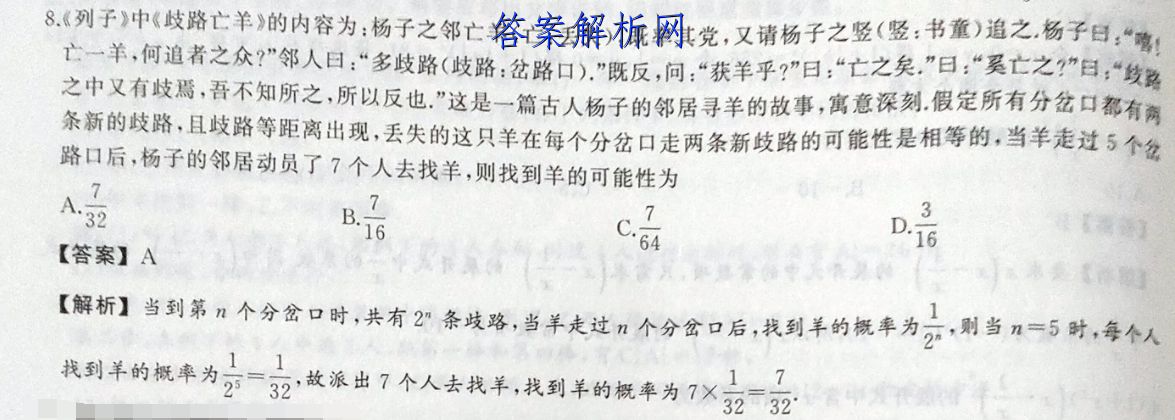 8.《列子》中《歧路亡羊》的内容为:杨子之邻亡羊 率其党,又请杨子之竖(竖:书童)追之.杨子曰:“嘻!
答案解析网
亡一羊,何追者之众?”邻人曰:“多歧路(歧路:岔路口).”既反,问:“获羊乎?”曰:“亡之矣.”曰:“奚亡之?”曰:“歧路
之中又有歧焉,吾不知所之,所以反也.”这是一篇古人杨子的邻居寻羊的故事,寓意深刻.假定所有分岔口都有两
条新的歧路,且歧路等距离出现,丢失的这只羊在每个分岔口走两条新歧路的可能性是相等的,当羊走过 5 个岔
路口后,杨子的邻居动员了 7 个人去找羊,则找到羊的可能性为
A. 7/32 B. 7/16 C. 7/64 D. 3/16
【答案】A
【解析】当到第 n 个分岔口时,共有 2ⁿ 条歧路,当羊走过 n 个分岔口后,找到羊的概率为 1/2ⁿ,则当 n=5 时,每个人
找到羊的概率为 1/2⁵=1/32,故派出 7 个人去找羊,找到羊的概率为 7×1/32=7/32.